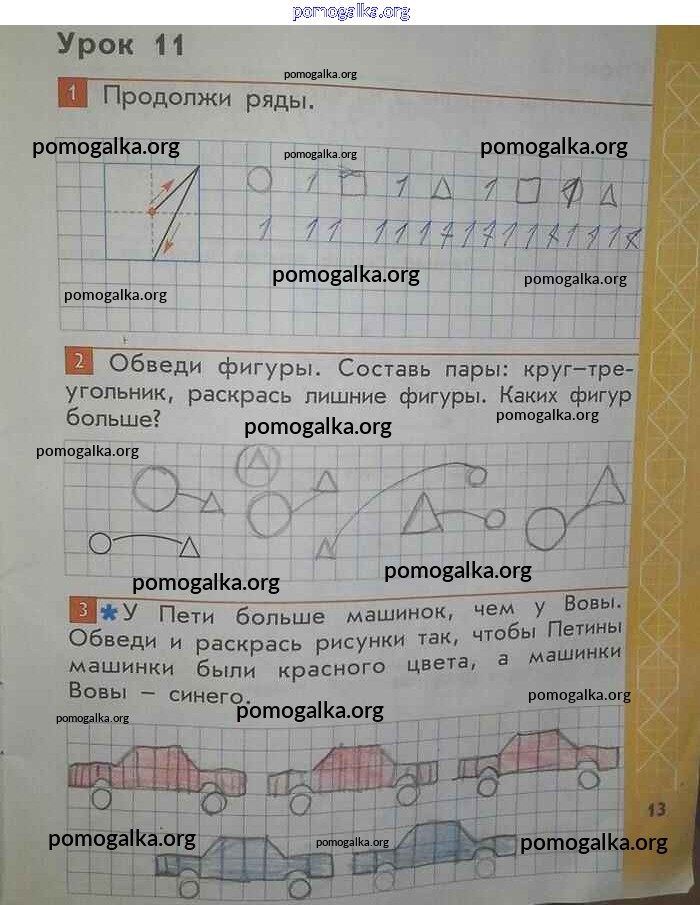 pomogalka.org
Урок 11
pomogalka.org
1 Продолжи ряды.
pomogalka.org pomogalka.org pomogalka.org
1 1 1 1
1 1 1 1 1 1 1 1 1 1 1 1 1 1 1
pomogalka.org pomogalka.org
pomogalka.org
2 Обведи фигуры. Составь пары: круг–тре-
угольник, раскрась лишние фигуры. Каких фигур
больше?
pomogalka.org pomogalka.org
pomogalka.org
pomogalka.org pomogalka.org
3 * У Пети больше машинок, чем у Вовы.
Обведи и раскрась рисунки так, чтобы Петины
машинки были красного цвета, а машинки
Вовы – синего.
pomogalka.org pomogalka.org pomogalka.org
13
pomogalka.org pomogalka.org pomogalka.org